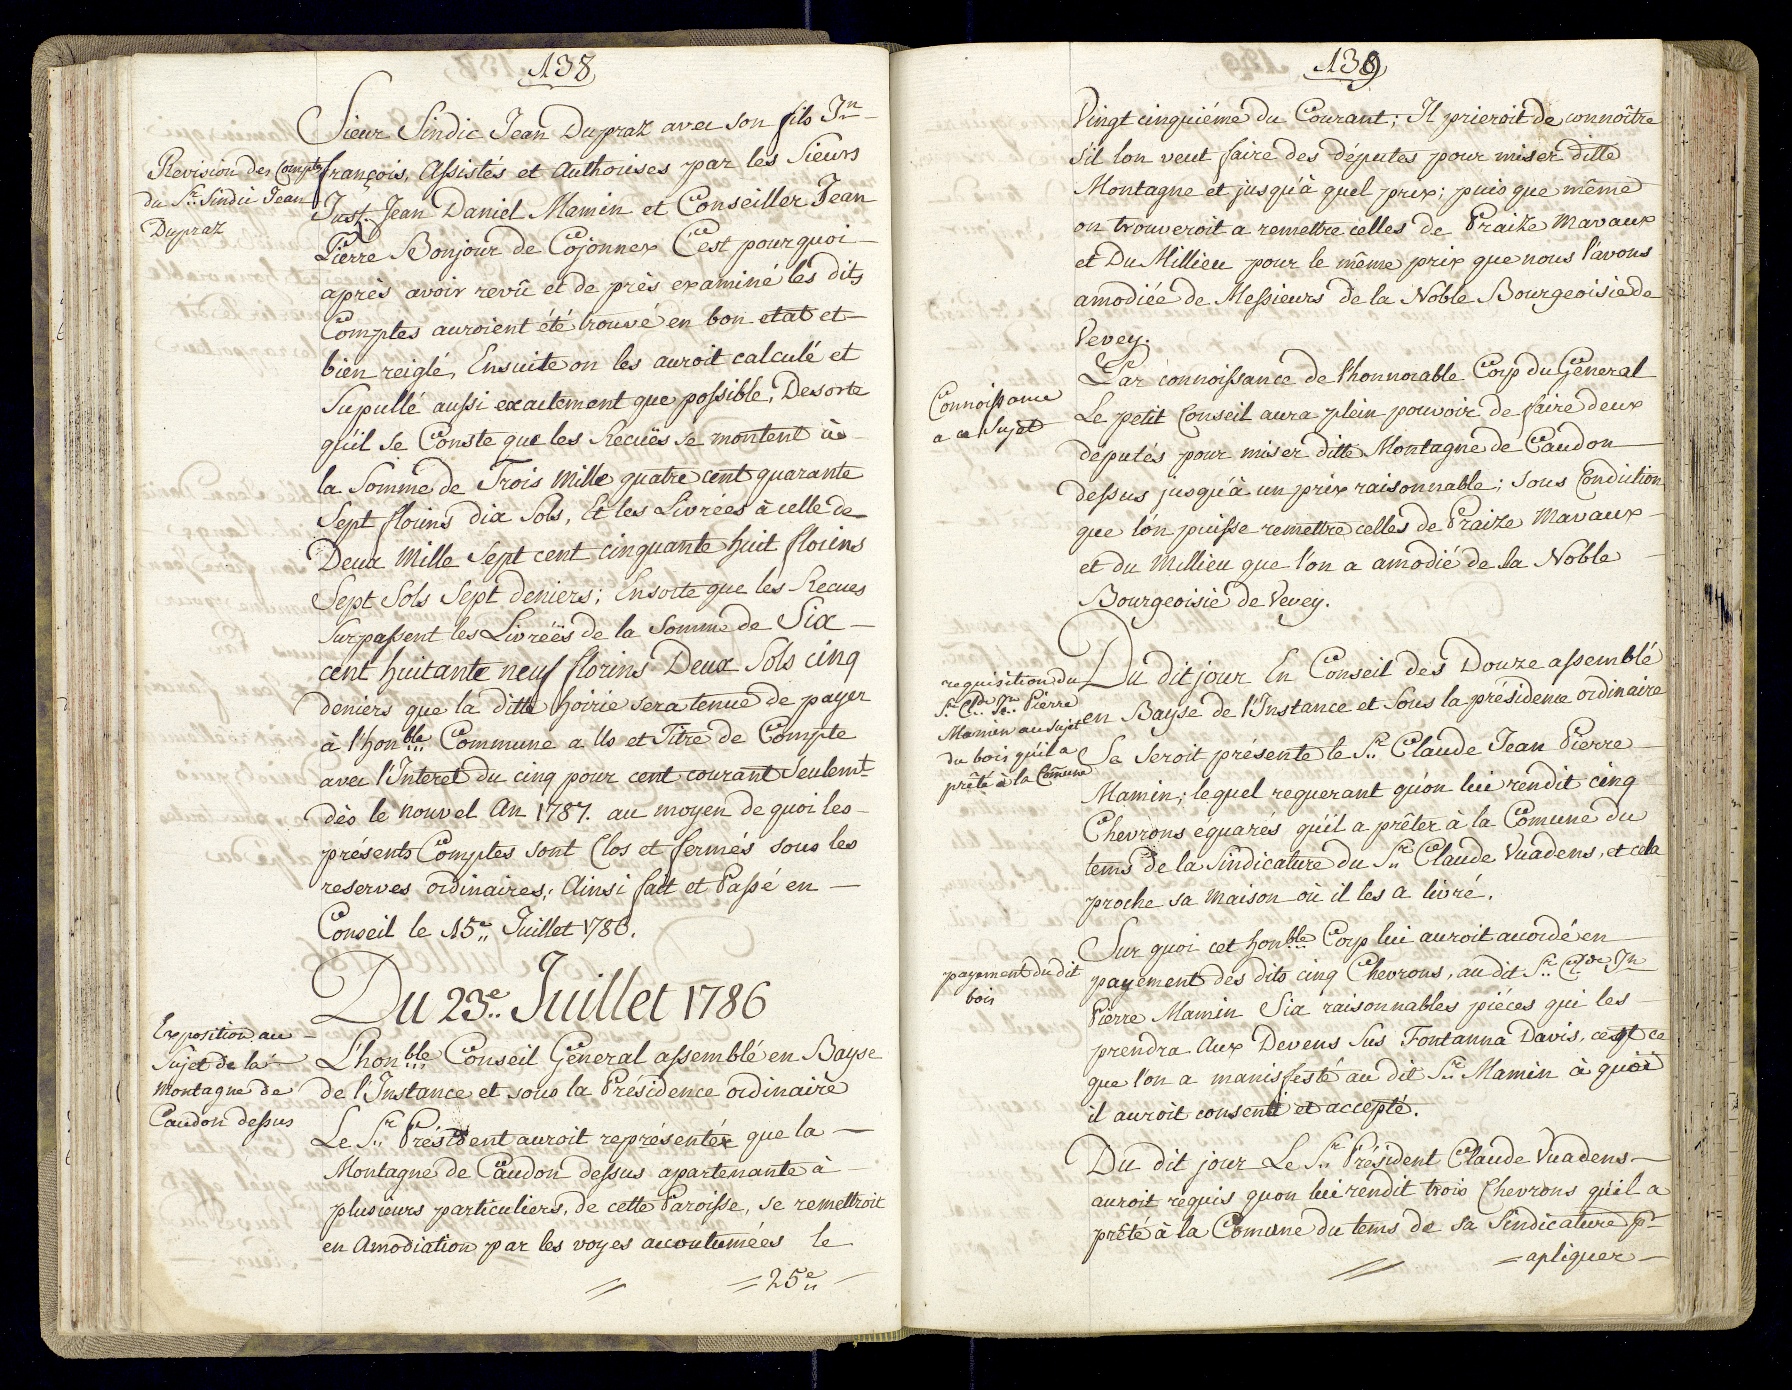 138
Sieur Sindic Jean Dupraz avec son fils Jn
Revision des Comptes
du Sr. Sindic Jean
Dupraz
françois, Assistés et Authorises par les Sieurs
Just. Jean Daniel Mamin et Conseiller Jean
Pierre Bonjour de Cojonnex C'est pourquoi
après avoir revû et de près examiné les dits
Comptes auroient été trouvé en bon etat et
bien reiglé, Ensuite on les auroit calculé et
Supullé aussi exactement que possible, Desorte
qu'il se Conste que les Recuës se montent à
la Somme de Trois Mille quatre cent quarante
Sept florins dix Sols, Et les Livrées à celle de
Deux Mille Sept cent cinquante huit florins
Sept Sols Sept deniers; Ensorte que les Recues
Surpassent les Livreës de la Somme de Six
cent huitante neuf florins Deux Sols cinq
deniers que la ditte hoirie sera tenue de payer
à l'honble Commune a Us et Titre de Compte
avec l'Interet du cinq pour cent courant Seulemt
dès le nouvel An 1787. au moyen de quoi les
présents Comptes sont Clos et fermés sous les
reserves ordinaires; Ainsi fait et Passé en
Conseil le 15e Juillet 1786.
Du 23e Juillet 1786
Exposition au
Sujet de la
Montagne de
Caudon dessus
L'honble Conseil Géneral assemblé en Bayse
de l'Instance et sous la Présidence ordinaire
Le Sr. Président auroit représenter que la
Montagne de Caudon dessus apartenante à
plusieurs particuliers, de cette Paroisse, se remettroit
en Amodiation par les voyes accoutumées le
= 25e
139
Vingt cinquiéme du Courant; Il prieroit de connoître
S'il l'on veut faire des députes pour miser ditte
Montagne et jusqu'à quel prix; puis que même
on trouveroit a remettre celles de Praize Mavaux
et Du Millieu pour le même prix que nous l'avons
amodiée de Messieurs de la Noble Bourgeoisie de
Vevey.
Connoissance
a ce Sujet
Par connoissance de l'honnorable Corp du Géneral
Le petit Conseil aura plein pouvoir de faire deux
députés pour miser ditte Montagne de Caudon
dessus jusqu'à un prix raisonnable; Sous Condiction
que l'on puisse remettre celles de Praize Mavaux
et du Millieu que l'on a amodié de la Noble
Bourgeoisie de Vevey.
requisition du
Sr. Cde Jn. Pierre
Mamin au Sujet
du bois qu'il a
prêté à la Comune
Du dit jour En Conseil des Douze assemblé
en Bayse de l'Instance et Sous la présidence ordinaire
Se Seroit présente le Sr. Claude Jean Pierre
Mamin; lequel requerant qu'on lui rendit cinq
Chevrons equarés qu'il a prêter à la Comune du
tems de la Sindicature du Sr. Claude Vuadens, et cela
proche sa Maison où il les a livré.
payement du dit
bois
Sur quoi cet honble Corp lui auroit acordé en
payement des dits cinq Chevrons, au dit Sr. Cde Jn
Pierre Mamin Six raisonnables piéces qui les
prendra Aux Devens Sus Fontanna Davis, ce qt ce
que l'on a manisfesté au dit Sr. Mamin à quoi
il auroit consenti et accepté.
Du dit jour Le Sr. Président Claude Vuadens
auroit requis quon lui rendit trois Chevrons qu'il a
prêté à la Comune du tems de sa Sindicature pr
= apliquer